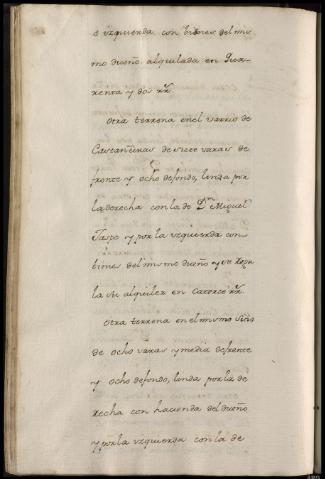 è yzquierda con bienes del mis
mo dueño alquilada en Qua-
renta y dos rr.
Otra terrena en el varrio de
Castañeiras de siete varas de
frente y ocho defondo, linda por
la derecha con la de Dn Miguel
y por la yzquierda con
bienes del mismo dueño y se
la su alquiler en Catorce rr.
Otra terrena en el mismo sitio
de ocho varas y media defrente
y ocho defondo, linda por la de
recha con hacienda del dueño
y por la yzquierda con la de